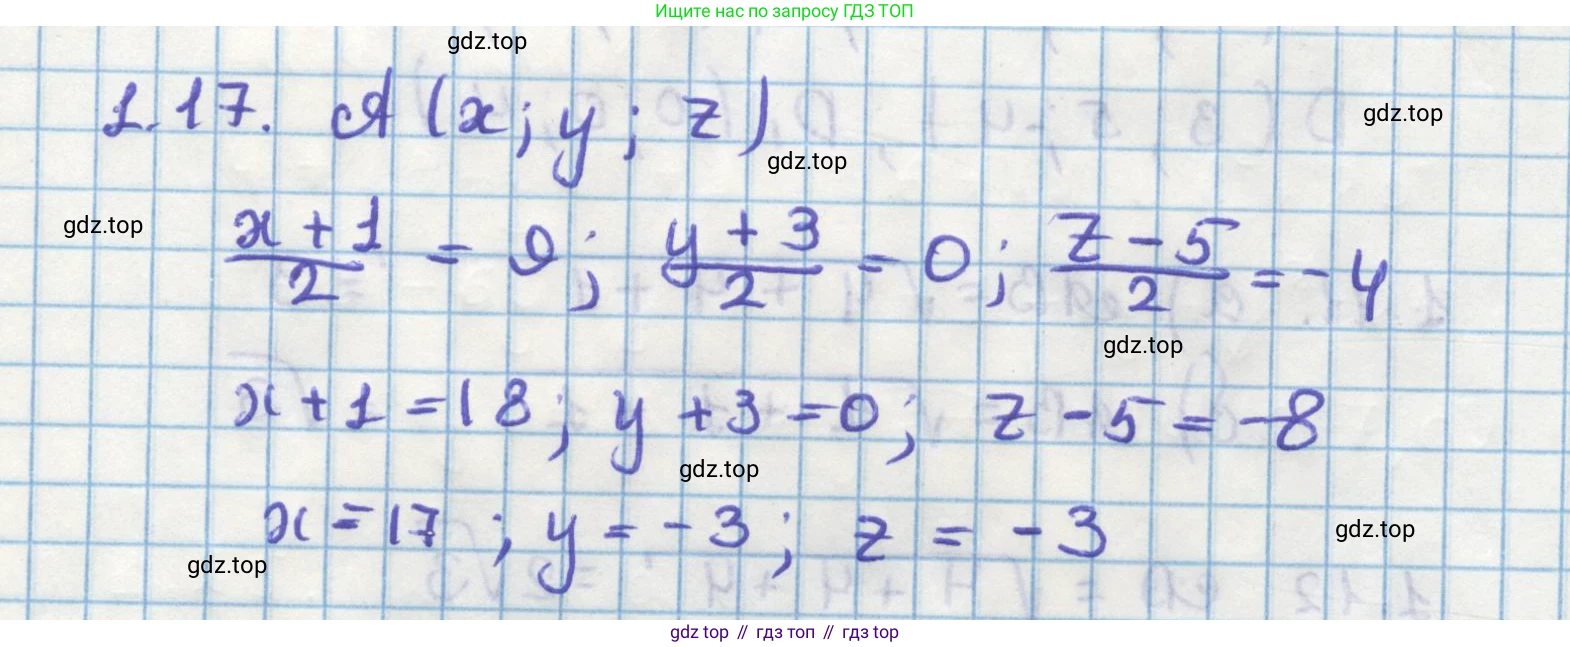 Ищите нас по запросу ГДЗ ТОП
gdz.top
1.17. A(x; y; z)
gdz.top
gdz.top
gdz.top
(x + 1)/2 = 9; (y + 3)/2 = 0; (z - 5)/2 = -4
gdz.top
x + 1 = 18; y + 3 = 0; z - 5 = -8
gdz.top
x = 17; y = -3; z = -3
gdz.top
gdz.top
gdz top // гдз топ // гдз top